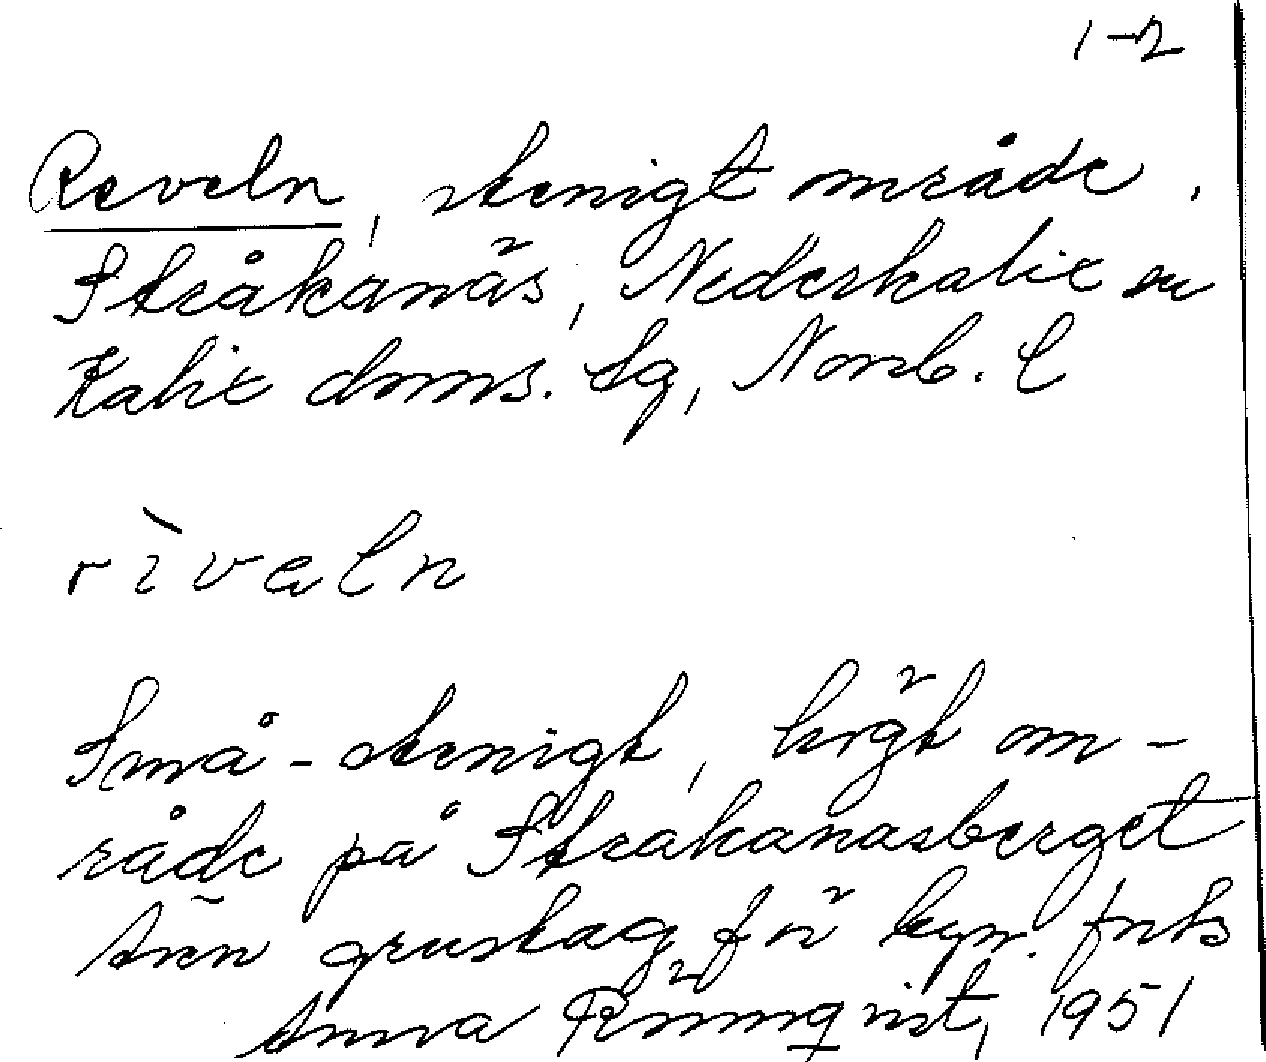 1-2
Reveln, stenigt område.
Stråkanäs, Nederkalix sn
Kalix doms. tg, Norrb. l
rìvaln
Små-stenigt, högt om-
råde på Stråkanäsberget
grustag för
Anna Rönnqvist, 1951